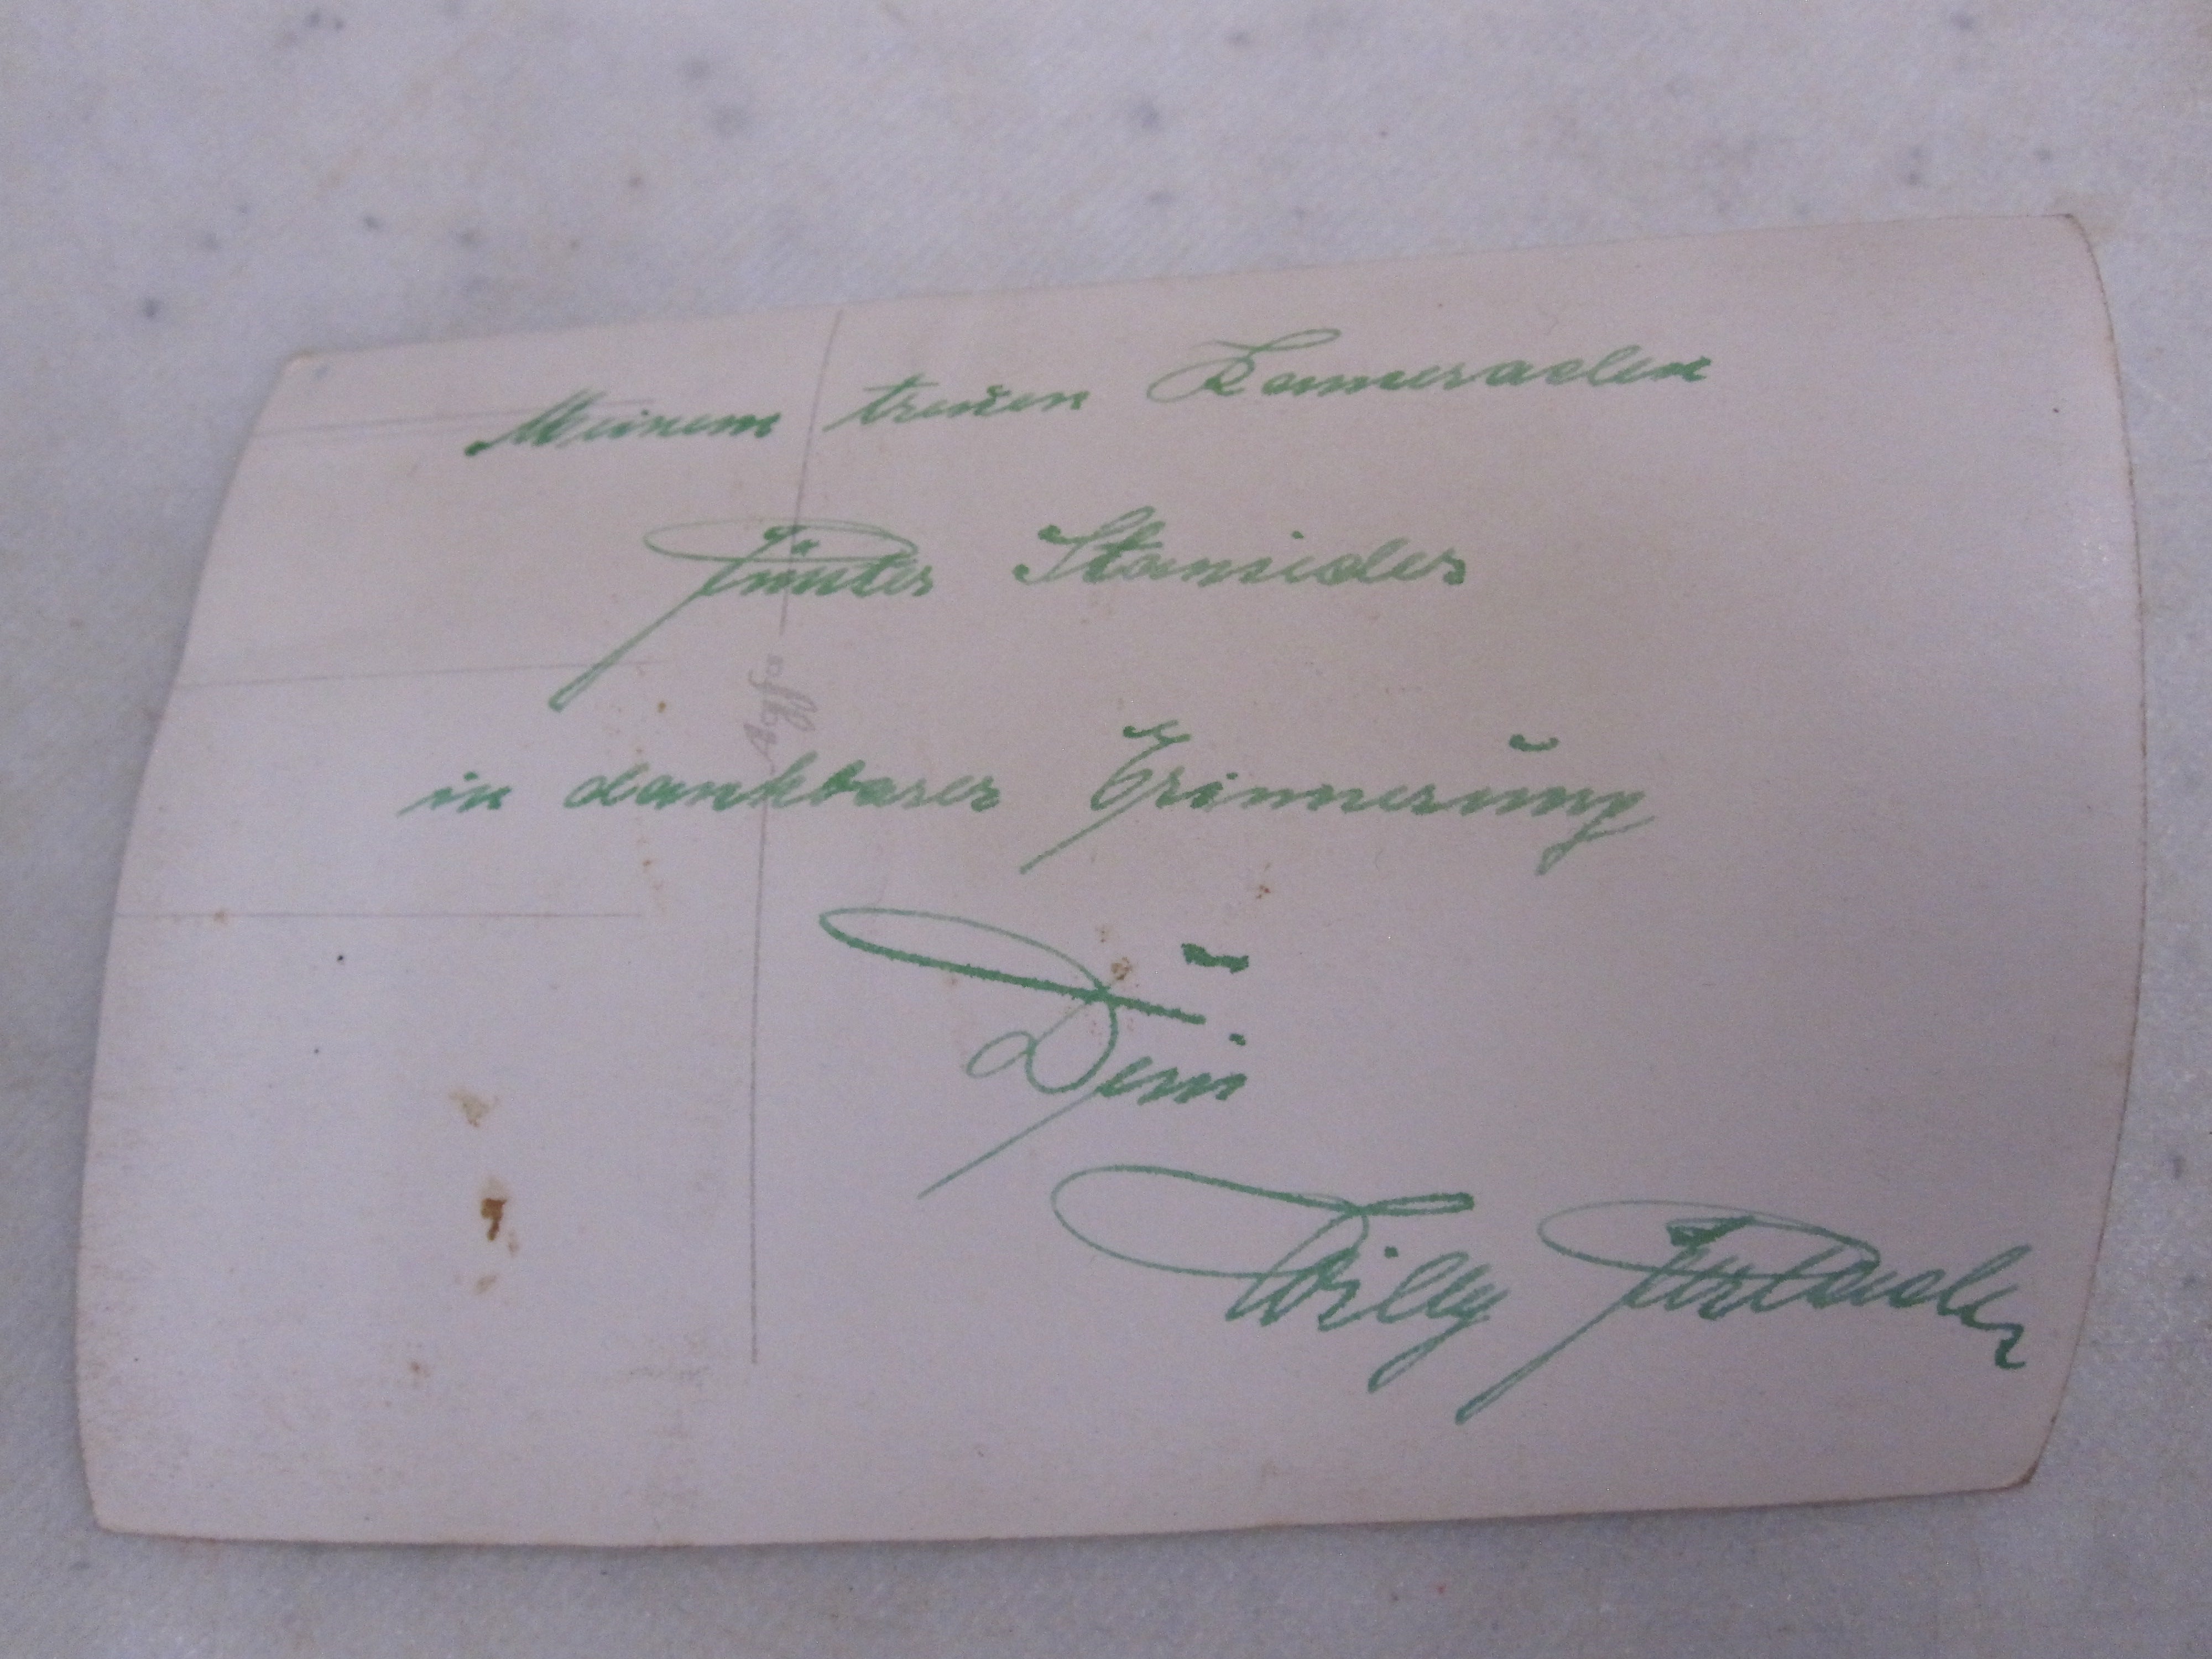 Meinem treuen Kameraden
Günter
in dankbarer Erinnerung
Dein
Willy
Agfa